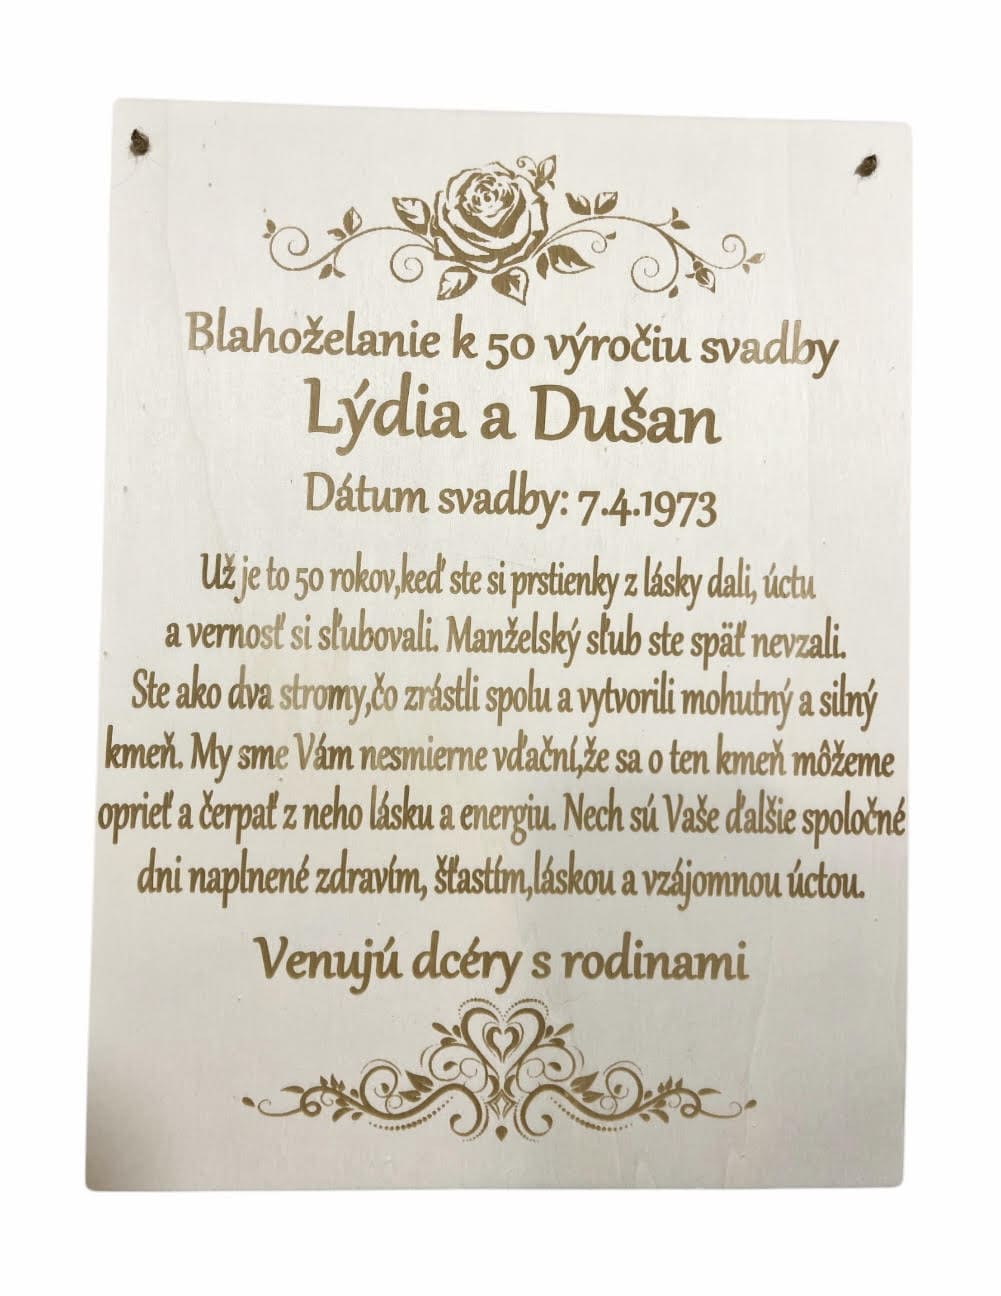 Blahoželanie k 50 výročiu svadby
Lýdia a Dušan
Dátum svadby: 7.4.1973
Už je to 50 rokov,keď ste si prstienky z lásky dali, úctu
a vernosť si sľubovali. Manželský sľub ste späť nevzali.
Ste ako dva stromy,čo zrástli spolu a vytvorili mohutný a silný
kmeň. My sme Vám nesmierne vďační,že sa o ten kmeň môžeme
oprieť a čerpať z neho lásku a energiu. Nech sú Vaše ďalšie spoločné
dni naplnené zdravím, šťastím,láskou a vzájomnou úctou.
Venujú dcéry s rodinami